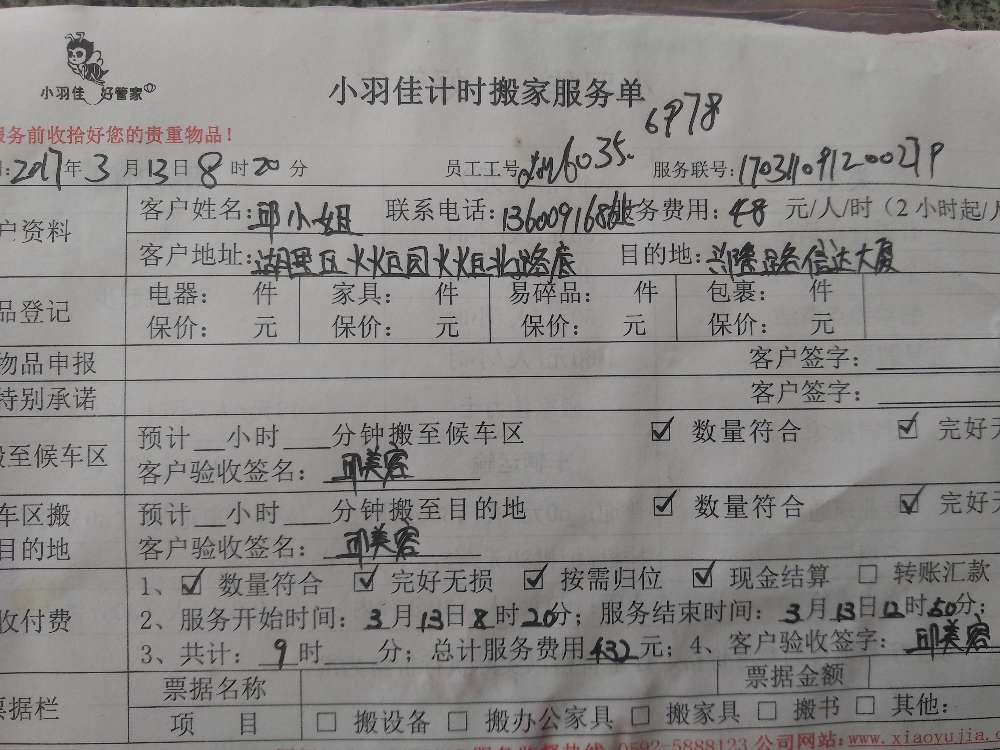 小羽佳 好管家
小羽佳计时搬家服务单
6978
服务前收拾好您的贵重物品！
2017年3月13日8时20分 员工工号 6035 服务联号：
户资料 客户姓名：邱小姐 联系电话： 服务费用：48 元/人/时（2小时起/
客户地址：湖里区火炬园火炬北路底 目的地：兴隆路信达大厦
品登记 电器： 件 家具： 件 易碎品： 件 包裹： 件
保价： 元 保价： 元 保价： 元 保价： 元
物品申报 客户签字：
特别承诺 客户签字：
搬至候车区 预计__小时___分钟搬至候车区 ☑ 数量符合 ☑ 完好无
客户验收签名：邱美容
车区搬 预计__小时___分钟搬至目的地 ☑ 数量符合 ☑ 完好无
目的地 客户验收签名：邱美容
收付费 1、☑ 数量符合 ☑ 完好无损 ☑ 按需归位 ☑ 现金结算 □ 转账汇款
2、服务开始时间：3月13日8时20分；服务结束时间：3月13日12时50分；
3、共计：9时____分；总计服务费用432元；4、客户验收签字：邱美容
票据栏 票据名称 票据金额
项 目 □ 搬设备 □ 搬办公家具 □ 搬家具 □ 搬书 □ 其他：
0592-5888123 公司网站：www.xiaoyujia.